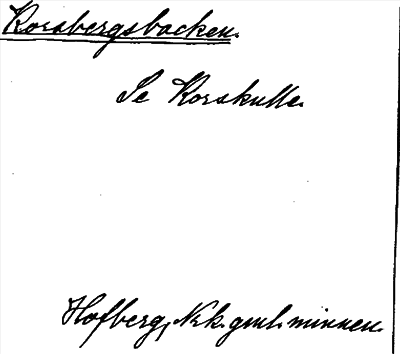 Korsbergsbacken.
Se Korskulle.
Hofberg, Nrk. gml. minnen.